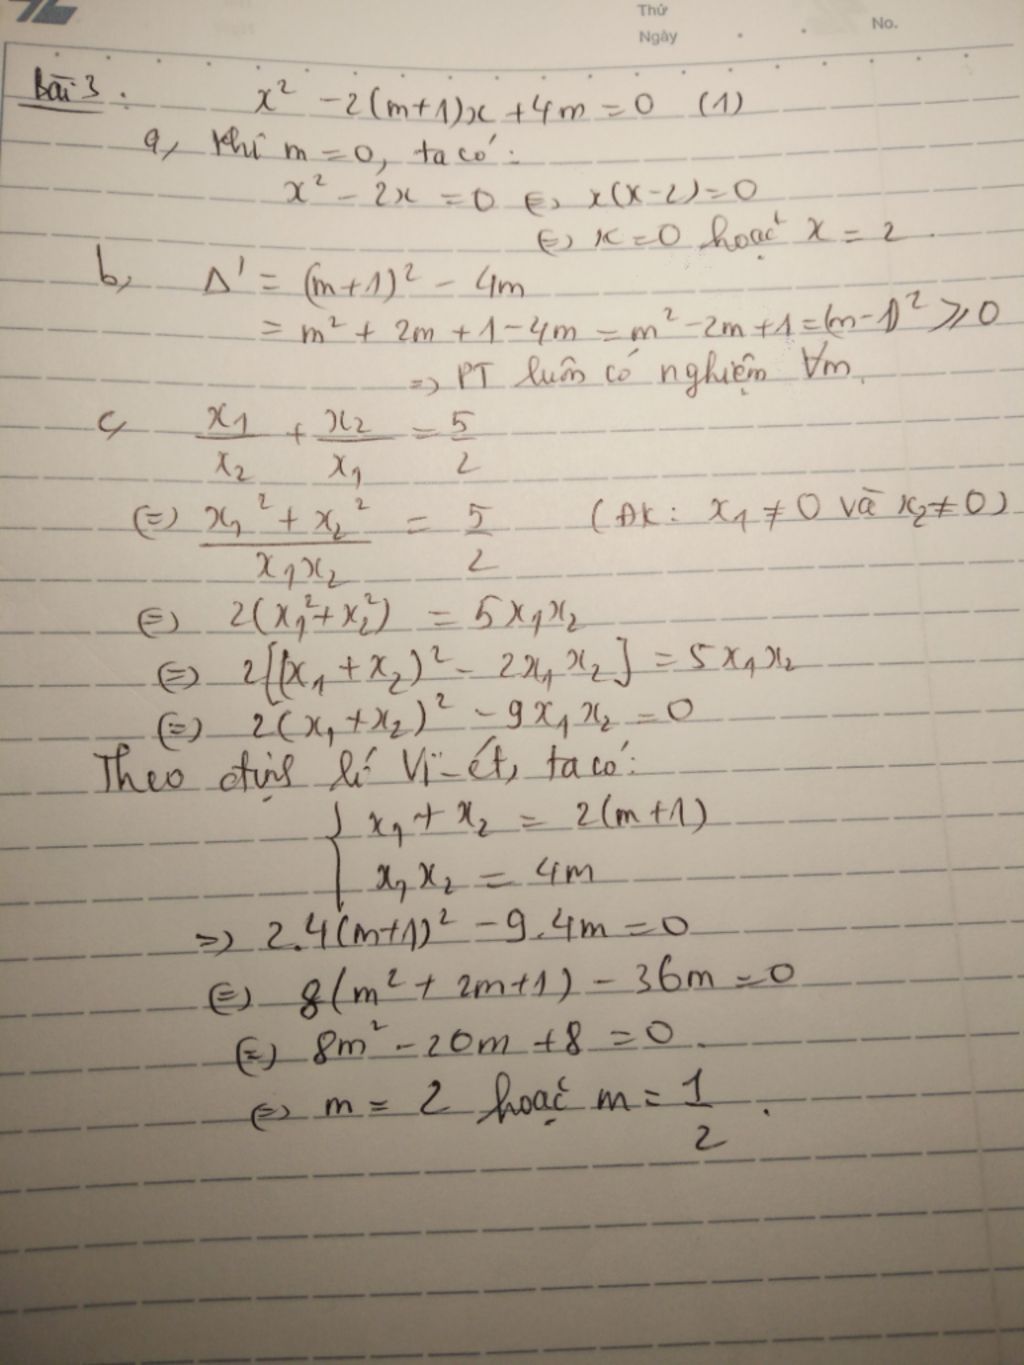 Thứ
Ngày
No.
Bài 3 : x² - 2(m+1)x + 4m = 0 (1)
a, Khi m = 0, ta có :
x² - 2x = 0 ⇔ x(x-2) = 0
⇔ x = 0 hoặc x = 2 .
b, Δ' = (m+1)² - 4m
= m² + 2m + 1 - 4m = m² - 2m + 1 = (m-1)² ⩾ 0
=> PT luôn có nghiệm ∀m.
c, x₁/x₂ + x₂/x₁ = 5/2
⇔ (x₁² + x₂²)/(x₁x₂) = 5/2 (ĐK : x₁ ≠ 0 và x₂ ≠ 0)
⇔ 2(x₁² + x₂²) = 5x₁x₂
⇔ 2[(x₁ + x₂)² - 2x₁x₂] = 5x₁x₂
⇔ 2(x₁ + x₂)² - 9x₁x₂ = 0
Theo định lí Vi-ét, ta có :
{ x₁ + x₂ = 2(m+1)
x₁x₂ = 4m
=> 2.4(m+1)² - 9.4m = 0
⇔ 8(m² + 2m + 1) - 36m = 0
⇔ 8m² - 20m + 8 = 0 .
⇔ m = 2 hoặc m = 1/2 .